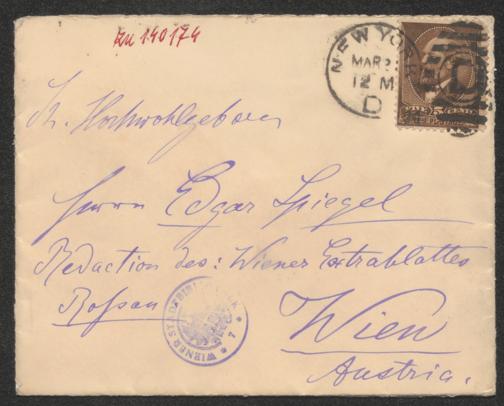 zu 140174
NEW YORK
MAR 2
12 M
D
Sr. Hochwohlgeboren
Herrn Edgar Spiegel
Redaction des: Wiener Extrablattes
Roßau
Wien
Austria.
WIENER STADTBIBLIOTHEK
* 7 *